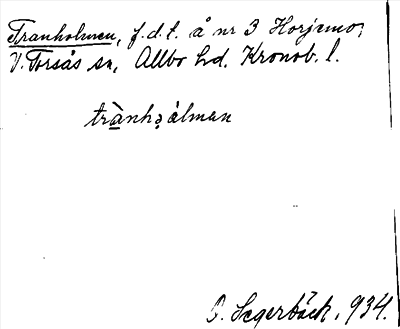 Tranholmen, f.d.t. å nr 3 Horjemo,
V. Torsås sn, Allbo hd. Kronob. l.
trànhə̣álmən
O. Segerbäck, 934.